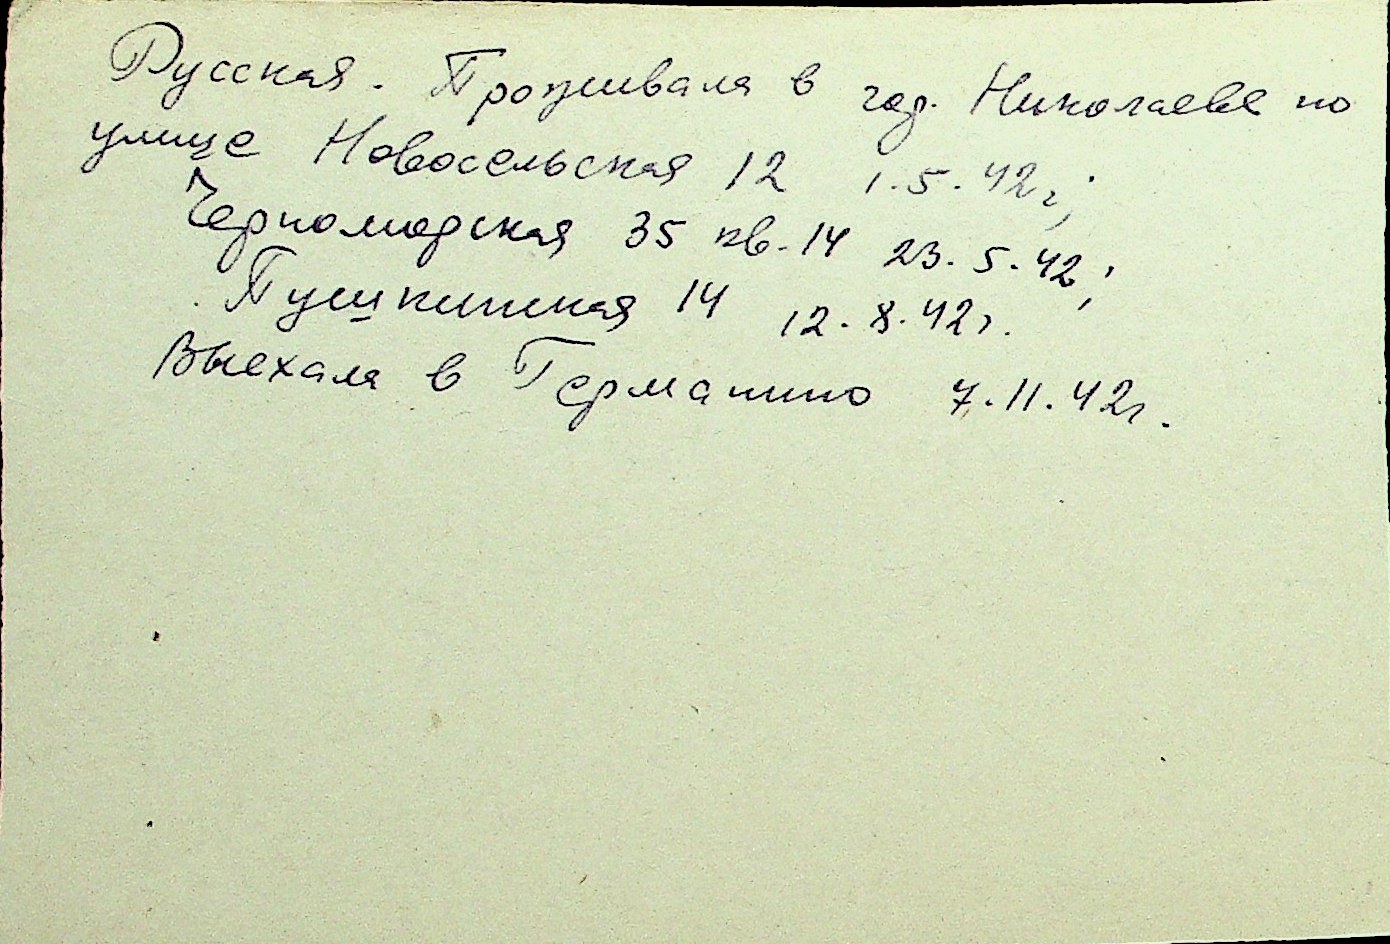 Русская. Проживала в гор. Николаеве по
улице Новосельская 12 1.5.42г;
Черноморская 35 кв. 14 23.5.42;
Пушкинская 14 12.8.42г.
Выехала в Германию 7.11.42г.